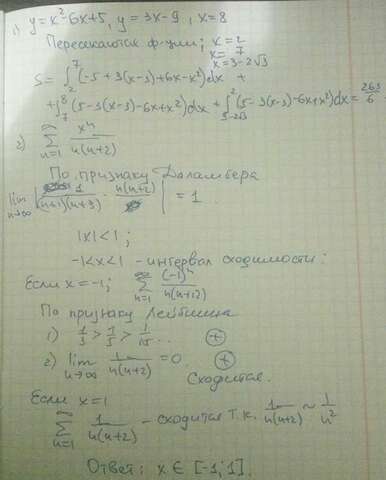 1) y = x² - 6x + 5, y = 3x - 9, x = 8
Пересекаются ф-ции; x = 2
x = 7
x = 3 - 2√3
S = ∫₂⁷ (-5 + 3(x-3) + 6x - x²) dx +
+ ∫₇⁸ (5 - 3(x-3) - 6x + x²) dx + ∫²₃₋₂√₃ (5 - 3(x-3) - 6x + x²) dx = 263/6
2) ∑ₙ₌₁^∞ xⁿ/n(n+2)
По признаку Даламбера
lim n→∞ | 1/(n+1)(n+3) · n(n+2)/ | = 1
|x| < 1;
-1 < x < 1 - интервал сходимости:
Если x = -1; ∑ₙ₌₁^∞ (-1)ⁿ/n(n+2)
По признаку Лейбница
1) 1/3 > 1/8 > 1/15 ... (+)
2) lim n→∞ 1/n(n+2) = 0 (+)
Сходится.
Если x = 1
∑ₙ₌₁^∞ 1/n(n+2) - сходится т.к. 1/n(n+2) ~ 1/n²
Ответ: x ∈ [-1; 1].